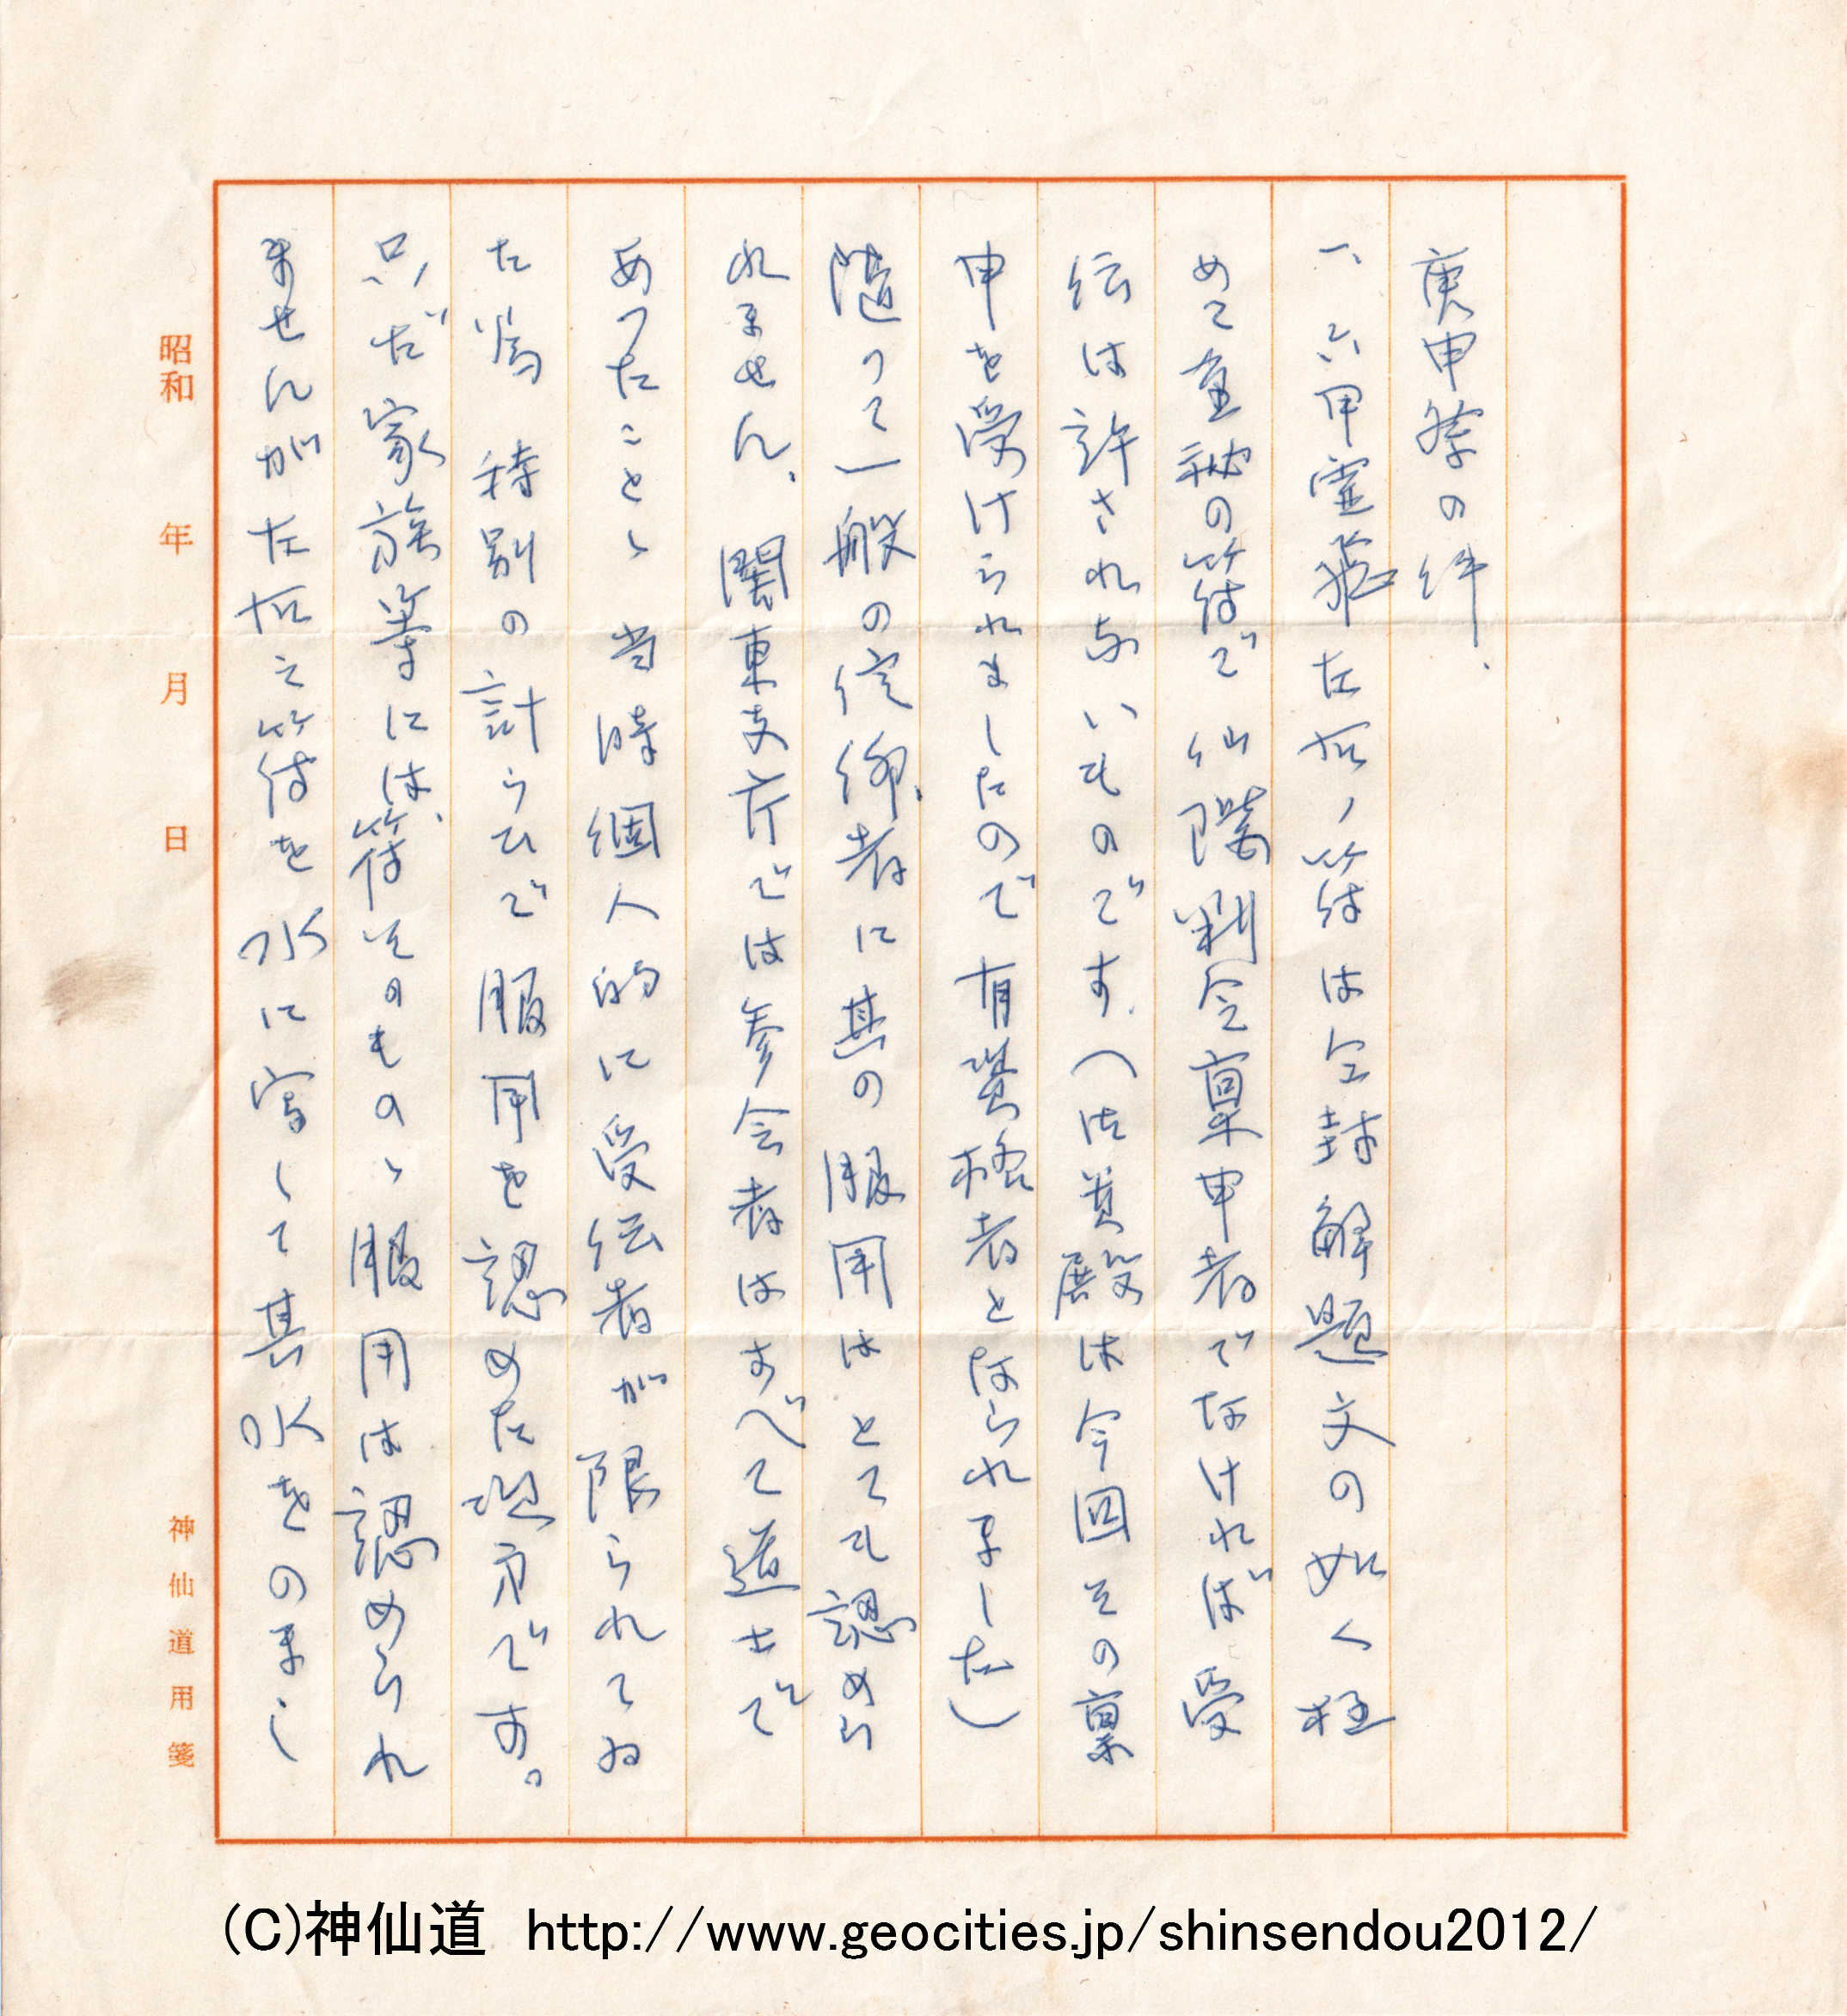 庚申祭の件、
一、六甲霊飛左右ノ符は全封解題文の如く極
めて重秘の符で仙階判令稟申者でなければ受
伝は許されないものです、(法貴殿は今回その稟
申を受けられましたので有資格者となられました)
随って一般の信仰者に其の服用はとても認めら
れません、関東支庁では参会者はすべて道士で
あつたことゝ当時個人的に受伝者が限られてゐ
た為特別の計らひで服用を認めた処方です。
只だ家族等には、符そのものゝ服用は認められ
ませんが左右之符を水に写して其水をのまし
昭和 年 月 日
神仙道用箋
(C)神仙道 http://www.geocities.jp/shinsendou2012/